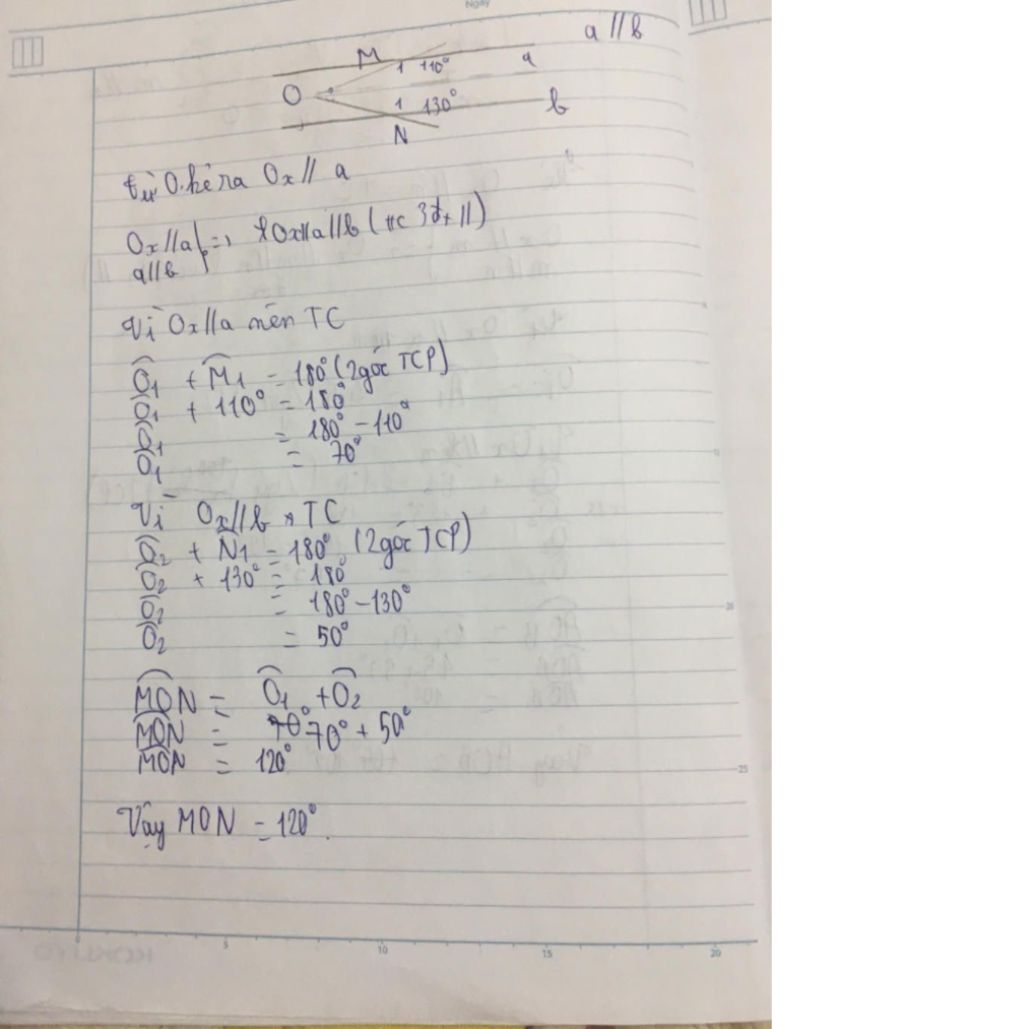 Ngày
a // b
M 1 110° a
O
1 130° b
N
từ O kẻ ra Ox // a
Ox//a } => Ox//a//b (tc 3đt //)
a//b
Vì Ox//a nên TC
O1 + M1 = 180° (2góc TCP)
O1 + 110° = 180°
O1 = 180° - 110°
O1 = 70°
Vì Ox//b n TC
O2 + N1 = 180° (2góc TCP)
O2 + 130° = 180°
O2 = 180° - 130°
O2 = 50°
MON = O1 + O2
MON = 70° + 50°
MON = 120°
Vậy MON = 120°.
5 10 15 20
25